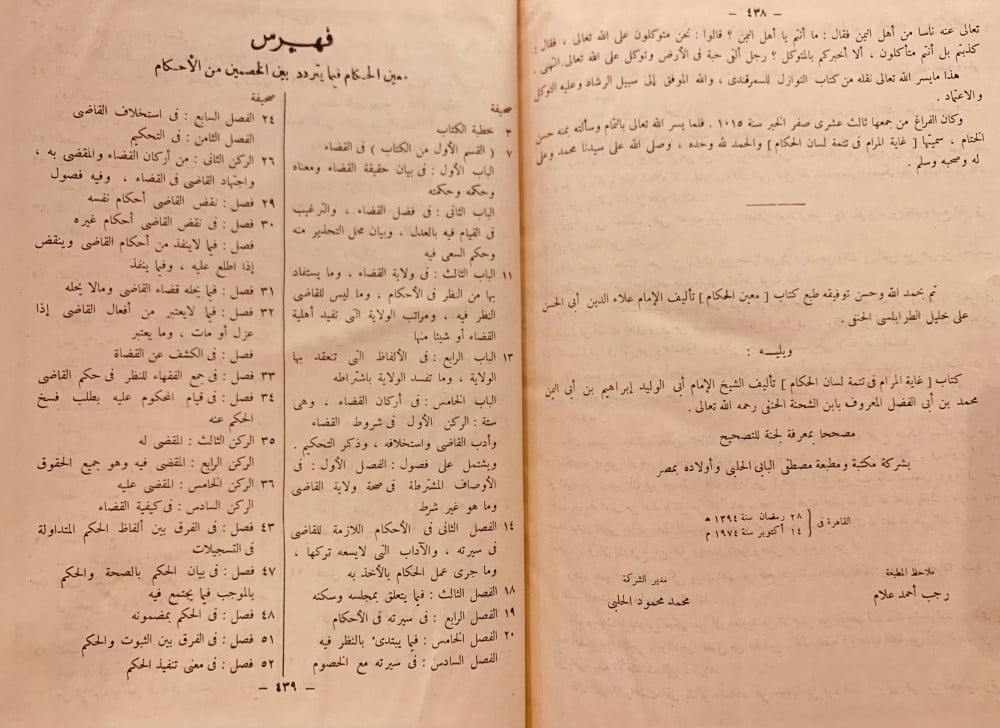 — ٤٣٨ —
تعالى عنه ناسا من أهل اليمن فقال : ما أنتم يا أهل اليمن ؟ قالوا : نحن متوكلون على الله تعالى ، فقال :
كذبتم بل أنتم متأكلون ، ألا أخبركم بالمتوكل ؟ رجل ألقى حبة فى الأرض وتوكل على الله تعالى انتهى .
هذا مايسر الله تعالى نقله من كتاب النوازل للسمرقندى ، والله الموفق إلى سبيل الرشاد وعليه التوكل
والاعتماد .
وكان الفراغ من جمعها ثالث عشرى صفر الخير سنة ١٠١٥ . فلما يسر الله تعالى بالتمام وسألته بمنه حسن
الختام ، سميتها [ غاية المرام فى تتمة لسان الحكام ] والحمد لله وحده ، وصلى الله على سيدنا محمد وعلى
له وصحبه وسلم .
تم بحمد الله وحسن توفيقه طبع كتاب [ معين الحكام ] تأليف الإمام علاء الدين أبى الحسن
على خليل الطرابلسى الحنفى .
ويليه :
كتاب [ غاية المرام فى تتمة لسان الحكام ] تأليف الشيخ الإمام أبى الوليد إبراهيم بن أبى اليمن
محمد بن أبى الفضل المعروف بابن الشحنة الحنفى رحمه الله تعالى .
مصححا بمعرفة لجنة للتصحيح
بشركة مكتبة ومطبعة مصطفى البابى الحلبى وأولاده بمصر
القاهرة فى { ٢٨ رمضان سنة ١٣٩٤ ه
١٤ أكتوبر سنة ١٩٧٤ م
ملاحظ المطبعة
رجب أحمد علام
مدير الشركة
محمد محمود الحلبى
فهرس
معين الحكام فيما يتردد بين الخصمين من الأحكام
صحيفة
٣ خطبة الكتاب
٧ ( القسم الأول من الكتاب ) فى القضاء
الباب الأول : فى بيان حقيقة القضاء ومعناه
وحكمه وحكمته
الباب الثانى : فى فضل القضاء ، والترغيب
فى القيام فيه بالعدل ، وبيان محل التحذير منه
وحكم السعى فيه
١١ الباب الثالث : فى ولاية القضاء ، وما يستفاد
بها من النظر فى الأحكام ، وما ليس للقاضى
النظر فيه ، ومراتب الولاية التى تفيد أهلية
القضاء أو شيئا منها
١٣ الباب الرابع : فى الألفاظ التى تنعقد بها
الولاية ، وما تفسد الولاية باشتراطه
الباب الخامس : فى أركان القضاء ، وهى
ستة : الركن الأول فى شروط القضاء
وأدب القاضى واستخلافه ، وذكر التحكيم .
ويشتمل على فصول : الفصل الأول : فى
الأوصاف المشترطة فى صحة ولاية القاضى
وما هو غير شرط
١٤ الفصل الثانى فى الأحكام اللازمة للقاضى
فى سيرته ، والآداب التى لايسعه تركها ،
وما جرى عمل الحكام بالأخذ به
١٨ الفصل الثالث : فيما يتعلق بمجلسه وسكنه
١٩ الفصل الرابع : فى سيرته فى الأحكام
٢٠ الفصل الخامس : فيما يبتدئ بالنظر فيه
الفصل السادس : فى سيرته مع الخصوم
صحيفة
٢٤ الفصل السابع : فى استخلاف القاضى
الفصل الثامن : فى التحكيم
٢٦ الركن الثانى : من أركان القضاء والمقضى به ،
واجتهاد القاضى فى القضاء ، وفيه فصول
٢٩ فصل : نقض القاضى أحكام نفسه
٣٠ فصل : فى نقض القاضى أحكام غيره
فصل : فيما لاينفذ من أحكام القاضى وينقض
إذا اطلع عليه ، وفيما ينفذ
٣١ فصل : فيما يحله قضاء القاضى ومالا يحله
٣٢ فصل : فيما لايعتبر من أفعال القاضى إذا
عزل أو مات ، وما يعتبر
فصل : فى الكشف عن القضاة
٣٣ فصل : فى جمع الفقهاء للنظر فى حكم القاضى
٣٤ فصل : فى قيام المحكوم عليه بطلب فسخ
الحكم عنه
٣٥ الركن الثالث : المقضى له
الركن الرابع : المقضى فيه وهو جميع الحقوق
٣٦ الركن الخامس : المقضى عليه
الركن السادس : فى كيفية القضاء
٤٣ فصل : فى الفرق بين ألفاظ الحكم المتداولة
فى التسجيلات
٤٧ فصل : فى بيان الحكم بالصحة والحكم
بالموجب فيما يجتمع فيه
٤٨ فصل : فى الحكم بمضمونه
٥١ فصل : فى الفرق بين الثبوت والحكم
٥٢ فصل : فى معنى تنفيذ الحكم
— ٤٣٩ —